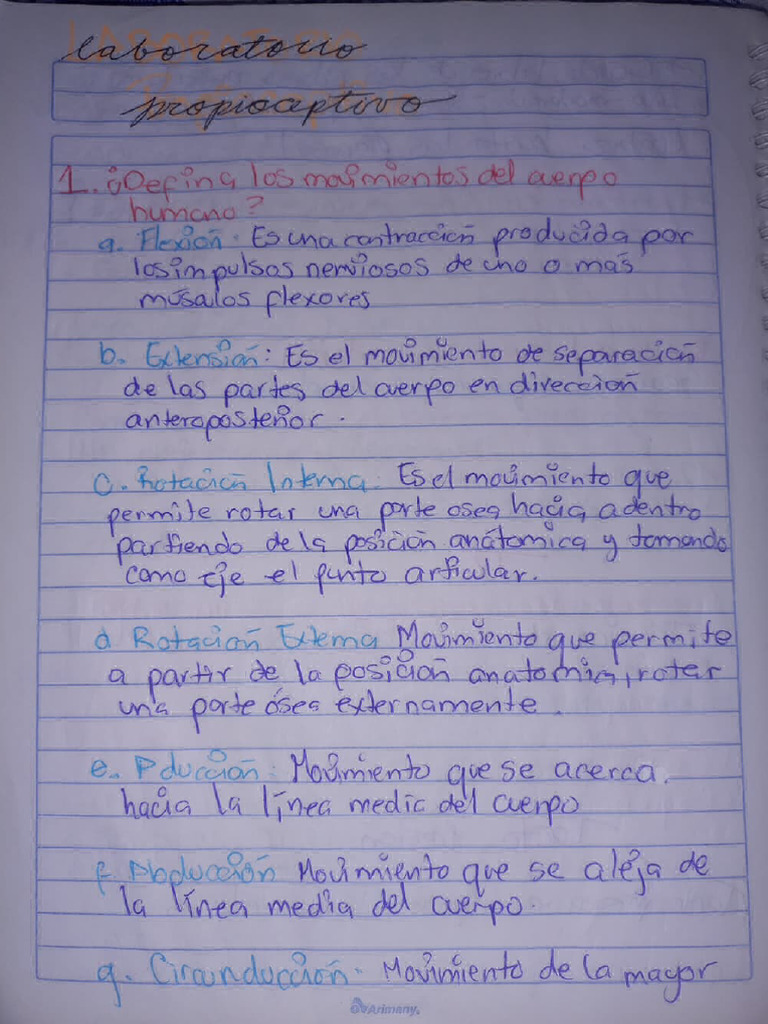 laboratorio
propioceptivo
1. ¿Defina los movimientos del cuerpo
humano?
a. Flexión: Es una contracción producida por
los impulsos nerviosos de uno o más
músculos flexores
b. Extensión: Es el movimiento de separación
de las partes del cuerpo en dirección
anteroposterior.
c. Rotación Interna: Es el movimiento que
permite rotar una parte osea hacia adentro
partiendo de la posición anátomica y tomando
como eje el punto articular.
d Rotación Externa Movimiento que permite
a partir de la posición anatomica, rotar
una parte ósea externamente.
e. Aducción: Movimiento que se acerca
hacia la línea media del cuerpo
f. Abducción Movimiento que se aleja de
la línea media del cuerpo.
g. Circunducción. Movimiento de la mayor
Arimany